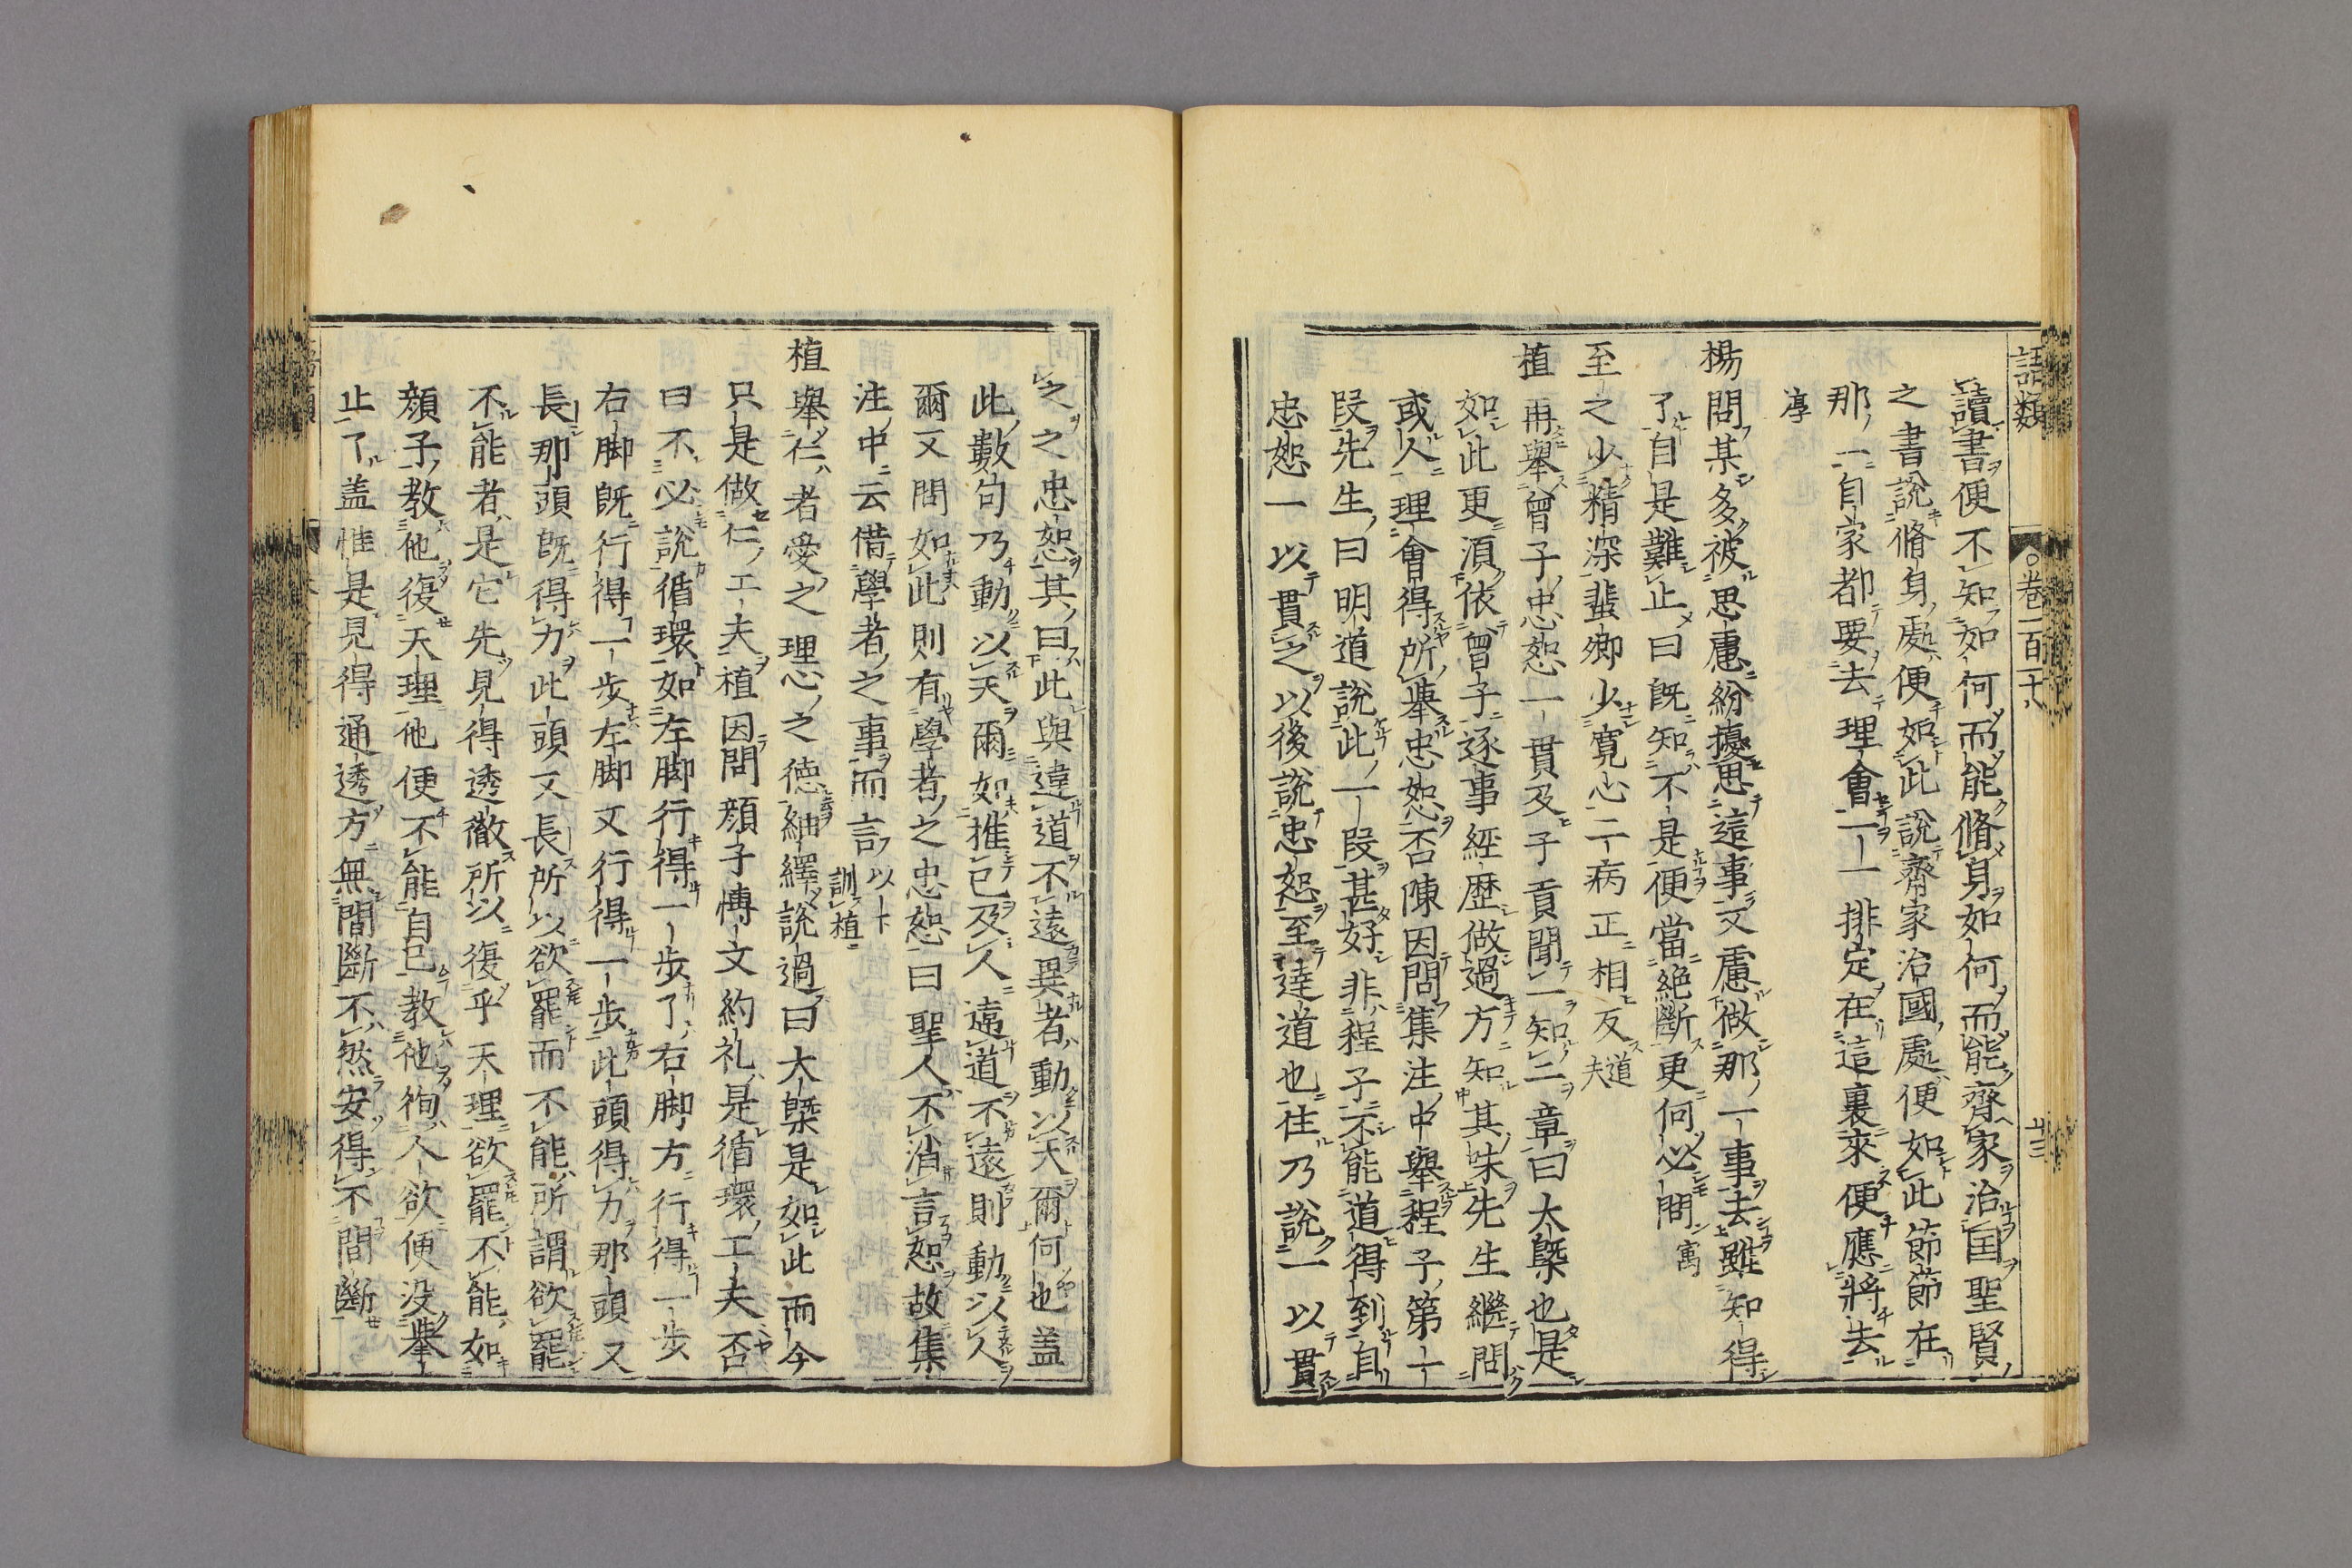 語類
〇卷一百十八
十三
讀書便不知如何而能脩身如何而能齊家治国聖賢
之書說脩身處便如此說齊家治國處便如此節節在
那一自家都要去理會一一排定在這裏來便應將去
淳
楊問某多被思慮紛擾思這事又慮做那一事去雖知得
了自是難止曰既知不是便當絕斷更何必問寓
至之少精深蜚卿少寬心二病正相反道夫
植再舉曾子忠恕一貫及子貢聞一知二章曰大槩也是
如此更湏依曾子逐事經歷做過方知其味先生繼問
或人理會得所舉忠恕否陳因問集注中舉程子第一
段先生曰明道說此一段甚好非程子不能道得到自
忠恕一以貫之以後說忠恕至達道也住乃說一以貫
之之忠恕其曰此與違道不遠異者動以天爾何也盖
此數句乃動以天爾如推已及人違道不遠則動以人
爾又問如此則有學者之忠恕曰聖人不消言恕故集
注中云借學者之事而言以下訓植
植舉仁者愛之理心之德紬繹說過曰大槩是如此而今
只是做仁工夫植因問顔子博文約礼是循環工夫否
曰不必說循環如左脚行得一步了右脚方行得一步
右脚既行得一步左脚又行得一步此頭得力那頭又
長那頭既得力此頭又長所以欲罷而不能所謂欲罷
不能者是它先見得透徹所以復乎天理欲罷不能如
顔子教他復天理他便不能自已教他徇人欲便没舉
止了盖惟是見得通透方無間斷不然安得不間斷